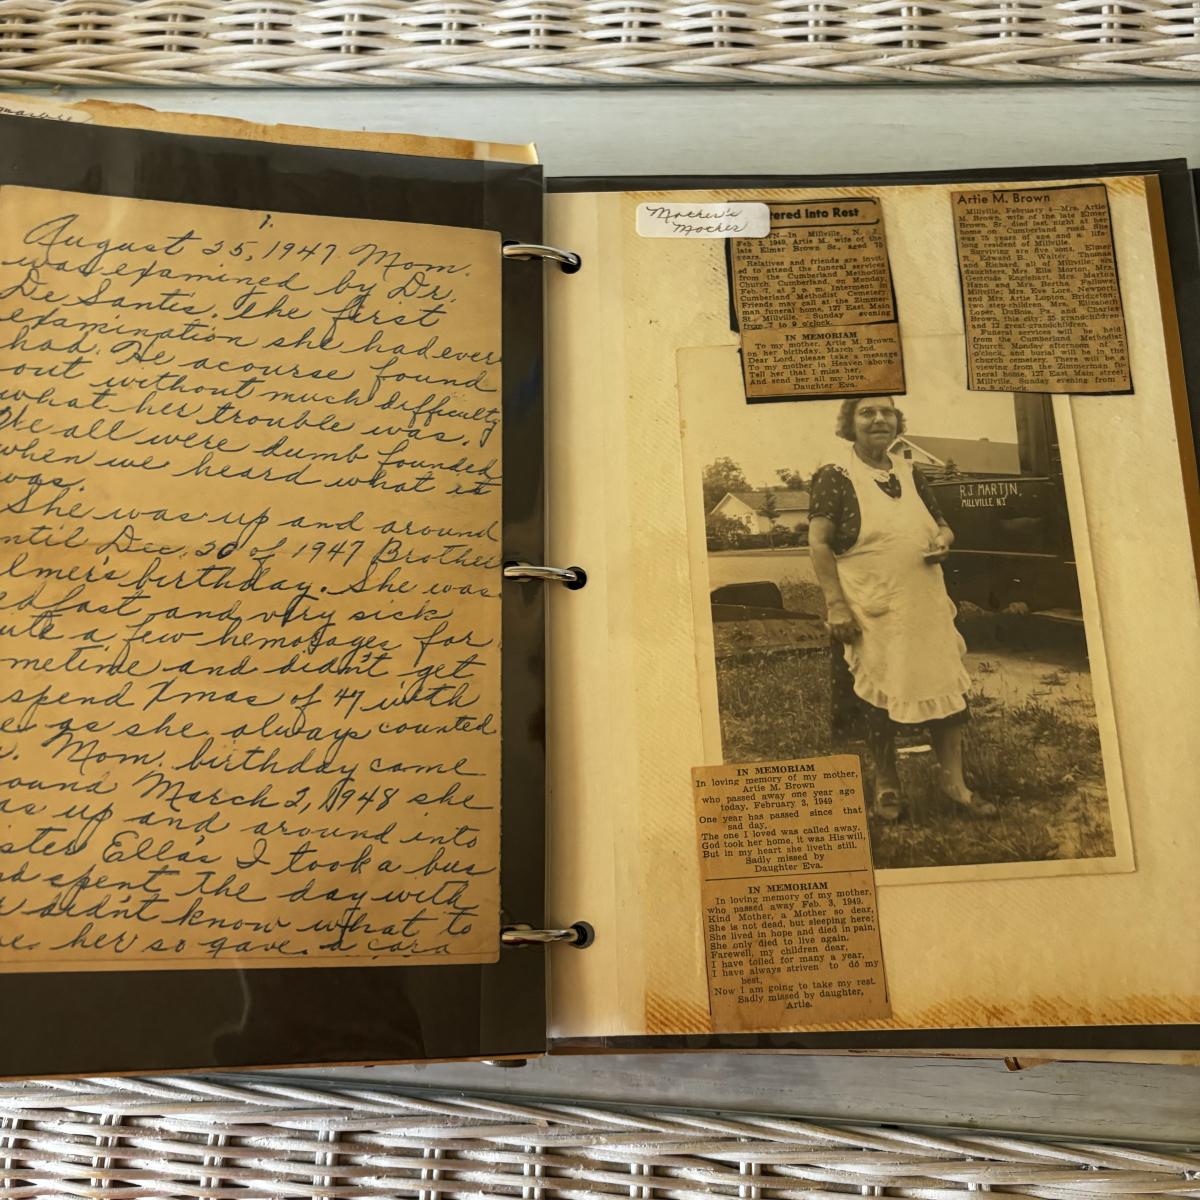 1.
August 25, 1947 Mom.
was examined by Dr.
De Santis. The first
examination she had ever
had. He acourse found
out without much difficulty
what her trouble was.
We all were dumb founded
when we heard what it
was.
She was up and around
ntil Dec. 20 of 1947 Brother
lmer's birthday. She was
dfast and very sick
ute a few hemorages for
metime and didn't get
spend Xmas of 47 with
e as she always counted
Mom. birthday came
ound March 2, 1948 she
as up and around into
ster Ella's I took a bus
nd spent the day with
r didn't know what to
her so gave a card
Mother's
Mother
tered Into Rest
N—In Millville, N. J.,
Feb. 3, 1949, Artie M., wife of the
late Elmer Brown Sr., aged 75
years.
Relatives and friends are invit-
ed to attend the funeral services
from the Cumberland Methodist
Church, Cumberland, on Monday,
Feb. 7, at 2 p. m. Interment in
Cumberland Methodist Cemetery.
Friends may call at the Zimmer-
man funeral home, 127 East Main
St., Millville, Sunday evening
from 7 to 9 o'clock.
IN MEMORIAM
To my mother, Artie M. Brown,
on her birthday, March 2nd.
Dear Lord, please take a message
To my mother in Heaven above.
Tell her that I miss her,
And send her all my love.
Daughter Eva.
Artie M. Brown
Millville, February 4—Mrs. Artie
M. Brown, wife of the late Elmer
Brown, Sr., died last night at her
home on Cumberland road. She
was 75 years of age and a life-
long resident of Millville.
Surviving are five sons, Elmer
R., Edward B., Walter, Thomas
and Richard, all of Millville; six
daughters, Mrs. Ella Morton, Mrs.
Gertrude Englehart, Mrs. Martha
Hann and Mrs. Bertha Fallows,
Millville; Mrs. Eva Lore, Newport,
and Mrs. Artie Lupton, Bridgeton;
two step-children, Mrs. Elizabeth
Loper, DuBois, Pa., and Charles
Brown, this city; 35 grandchildren
and 12 great-grandchildren.
Funeral services will be held
from the Cumberland Methodist
Church, Monday afternoon at 2
o'clock, and burial will be in the
church cemetery. There will be a
viewing from the Zimmerman fu-
neral home, 127 East Main street,
Millville, Sunday evening from 7
to 9 o'clock.
R.J. MARTIN.
MILLVILLE. N.J.
IN MEMORIAM
In loving memory of my mother,
Artie M. Brown
who passed away one year ago
today, February 3, 1949
One year has passed since that
sad day,
The one I loved was called away.
God took her home, it was His will,
But in my heart she liveth still.
Sadly missed by
Daughter Eva.
IN MEMORIAM
In loving memory of my mother,
who passed away Feb. 3, 1949.
Kind Mother, a Mother so dear,
She is not dead, but sleeping here;
She lived in hope and died in pain,
She only died to live again.
Farewell, my children dear,
I have toiled for many a year,
I have always striven to do my
best,
Now I am going to take my rest.
Sadly missed by daughter,
Artie.